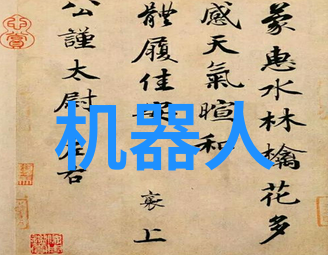 蒙惠水林檎花多
感天氣暄和
體履佳 襄上
公謹太尉左右
机器人